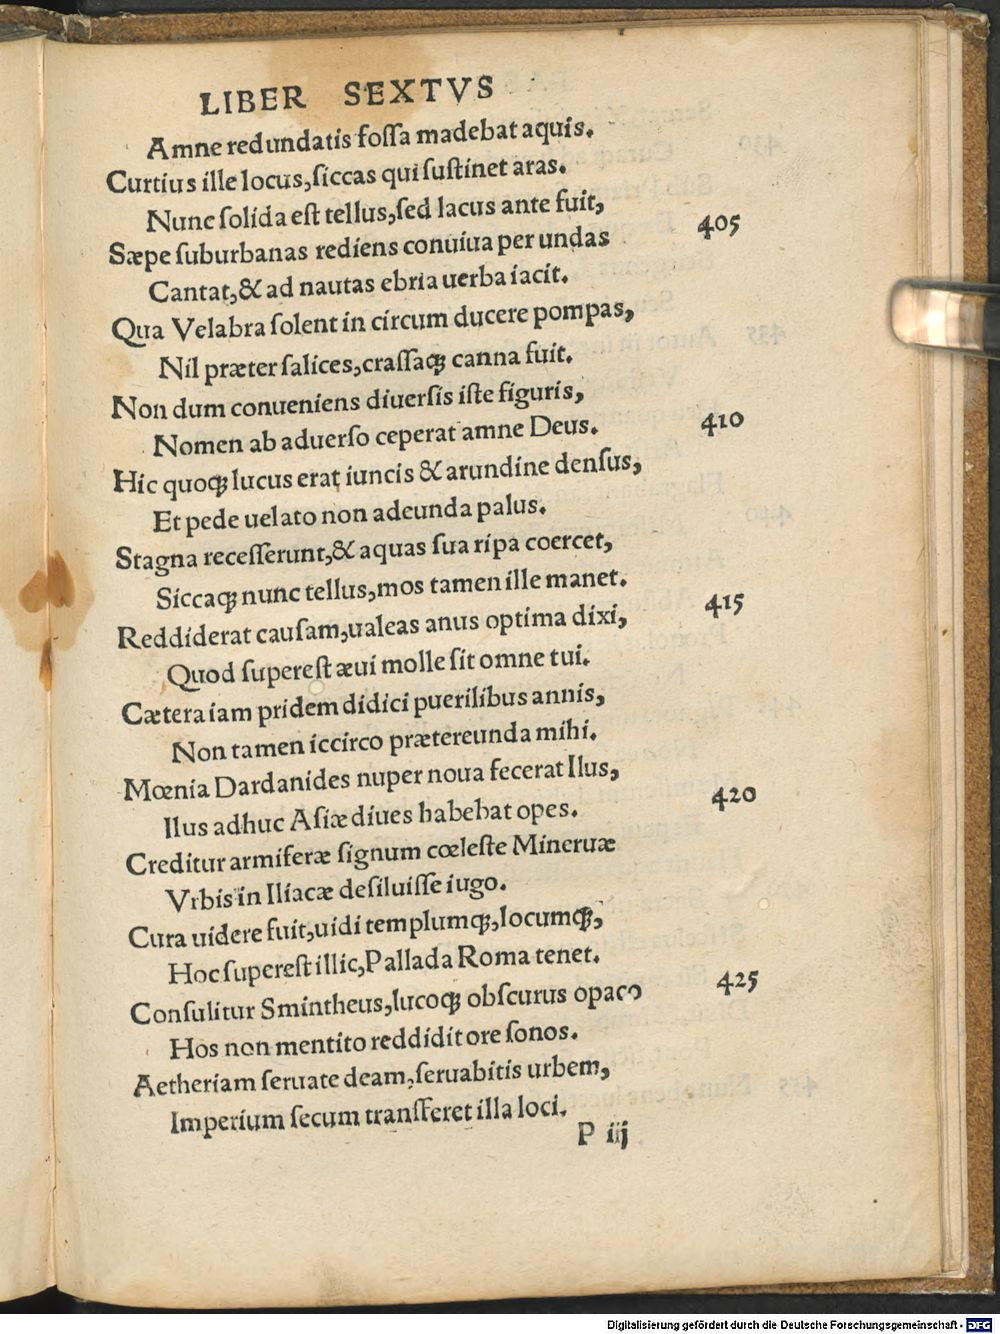 LIBER SEXTVS
Amne redundatis foſſa madebat aquis.
Curtius ille locus,ſiccas qui ſuſtinet aras.
Nunc ſolida eſt tellus,ſed lacus ante fuit,
Sæpe ſuburbanas rediens conuiua per undas 405
Cantat,& ad nautas ebria uerba iacit.
Qua Velabra ſolent in circum ducere pompas,
Nil præter ſalices,craſſaq; canna fuit.
Non dum conueniens diuerſis iſte figuris,
Nomen ab aduerſo ceperat amne Deus. 410
Hic quoq; lucus erat iuncis & arundine denſus,
Et pede uelato non adeunda palus.
Stagna receſſerunt,& aquas ſua ripa coercet,
Siccaq; nunc tellus,mos tamen ille manet.
Reddiderat cauſam,ualeas anus optima dixi, 415
Quod ſupereſt æui molle ſit omne tui.
Cætera iam pridem didici puerilibus annis,
Non tamen iccirco prætereunda mihi.
Mœnia Dardanides nuper noua fecerat Ilus,
Ilus adhuc Aſiæ diues habebat opes. 420
Creditur armiferæ ſignum cœleſte Mineruæ
Vrbis in Iliacæ deſiluiſſe iugo.
Cura uidere fuit,uidi templumq;,locumq;,
Hoc ſupereſt illic,Pallada Roma tenet.
Conſulitur Smintheus,lucoq; obſcurus opaco 425
Hos non mentito reddidit ore ſonos.
Aetheriam ſeruate deam,ſeruabitis urbem,
Imperium ſecum tranſferet illa loci.
P iij
Digitalisierung gefördert durch die Deutsche Forschungsgemeinschaft - DFG